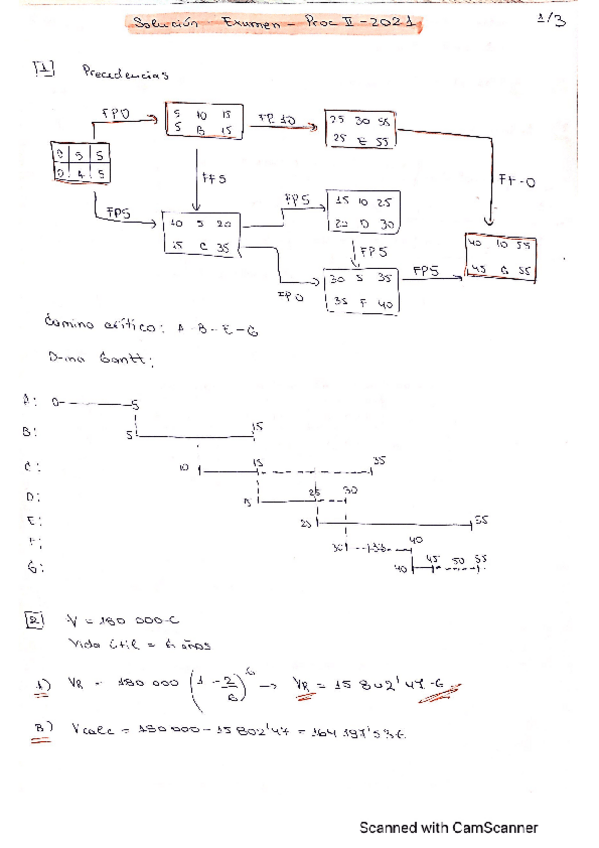 Solución Examen - Proc II - 2021
1/3
[1] Precedencias
FP0
5 10 15
5 B 15
FP 10
25 30 55
25 E 55
0 5 5
0 A 5
FF5
FF-0
FP5
10 5 20
15 C 35
FP5
15 10 25
20 D 30
FP5
40 10 55
45 G 55
FP0
30 5 35
35 F 40
FP5
Camino crítico: A-B-E-G
D-ma Gantt:
A: 0 5
B: 5 15
C: 10 15 35
D: 25 30
E: 55
F: 40
G: 40 45 50 55
[2] V = 180 000 €
Vida útil = 6 años
1) VR = 180 000 (1 - 2/6)^6 → VR = 15 802'47 €
B) Vcalc = 180 000 - 15 802'47 = 164 197'53 €
Scanned with CamScanner